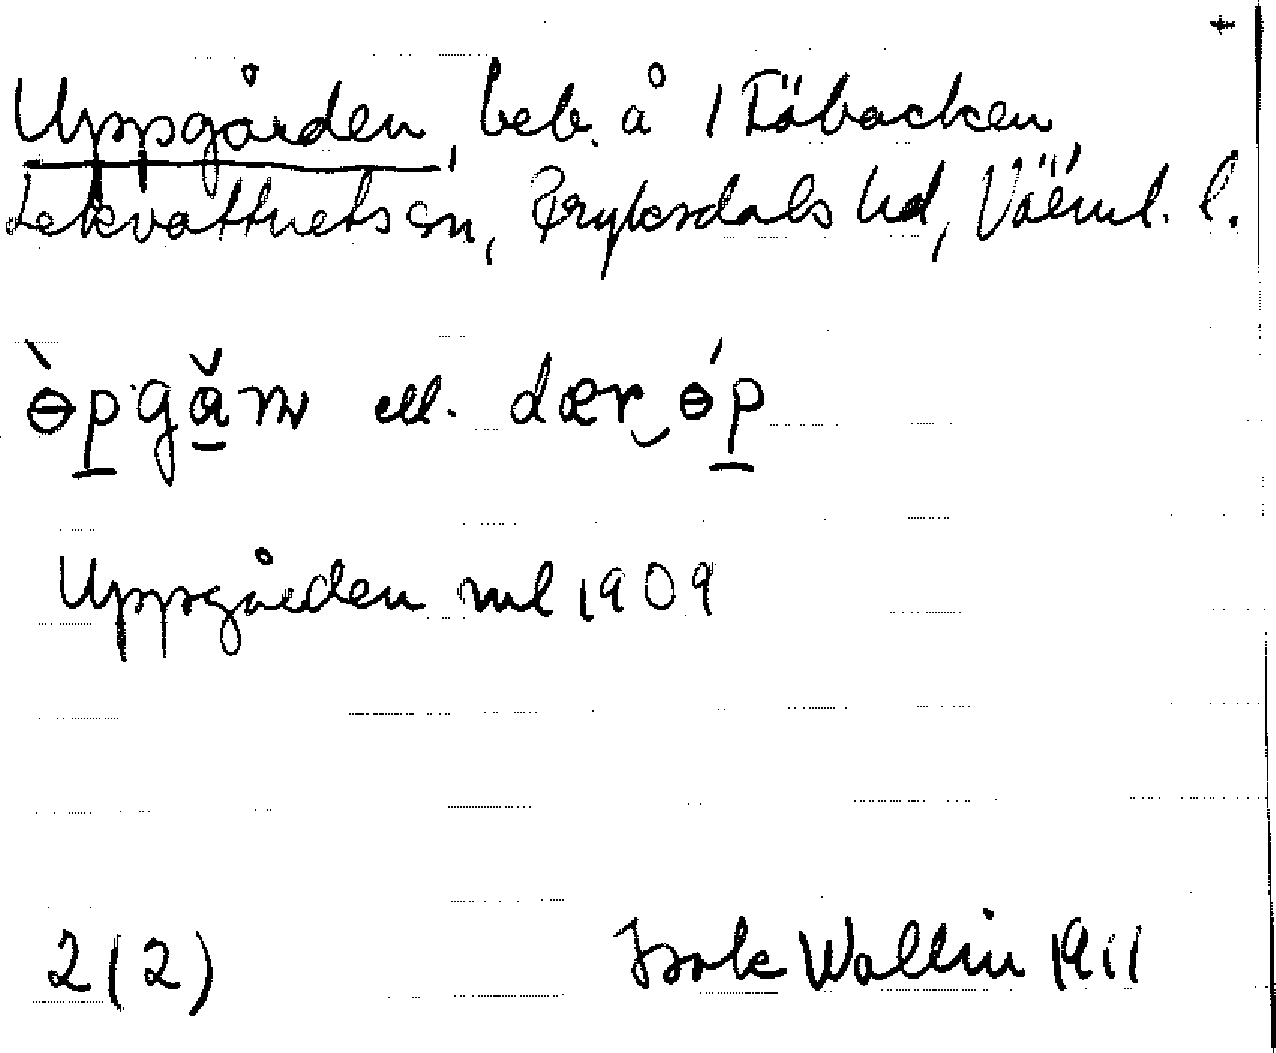 +
Uppgården, beb. å 1 Fäbacken,
Lekvattnets sn, Fryksdals hd, Värml. l.
ɵ̀pgǡɳ ell. dær‿ɵ́p
Uppgården ml 1909
2(2) Isak Wallin 1911